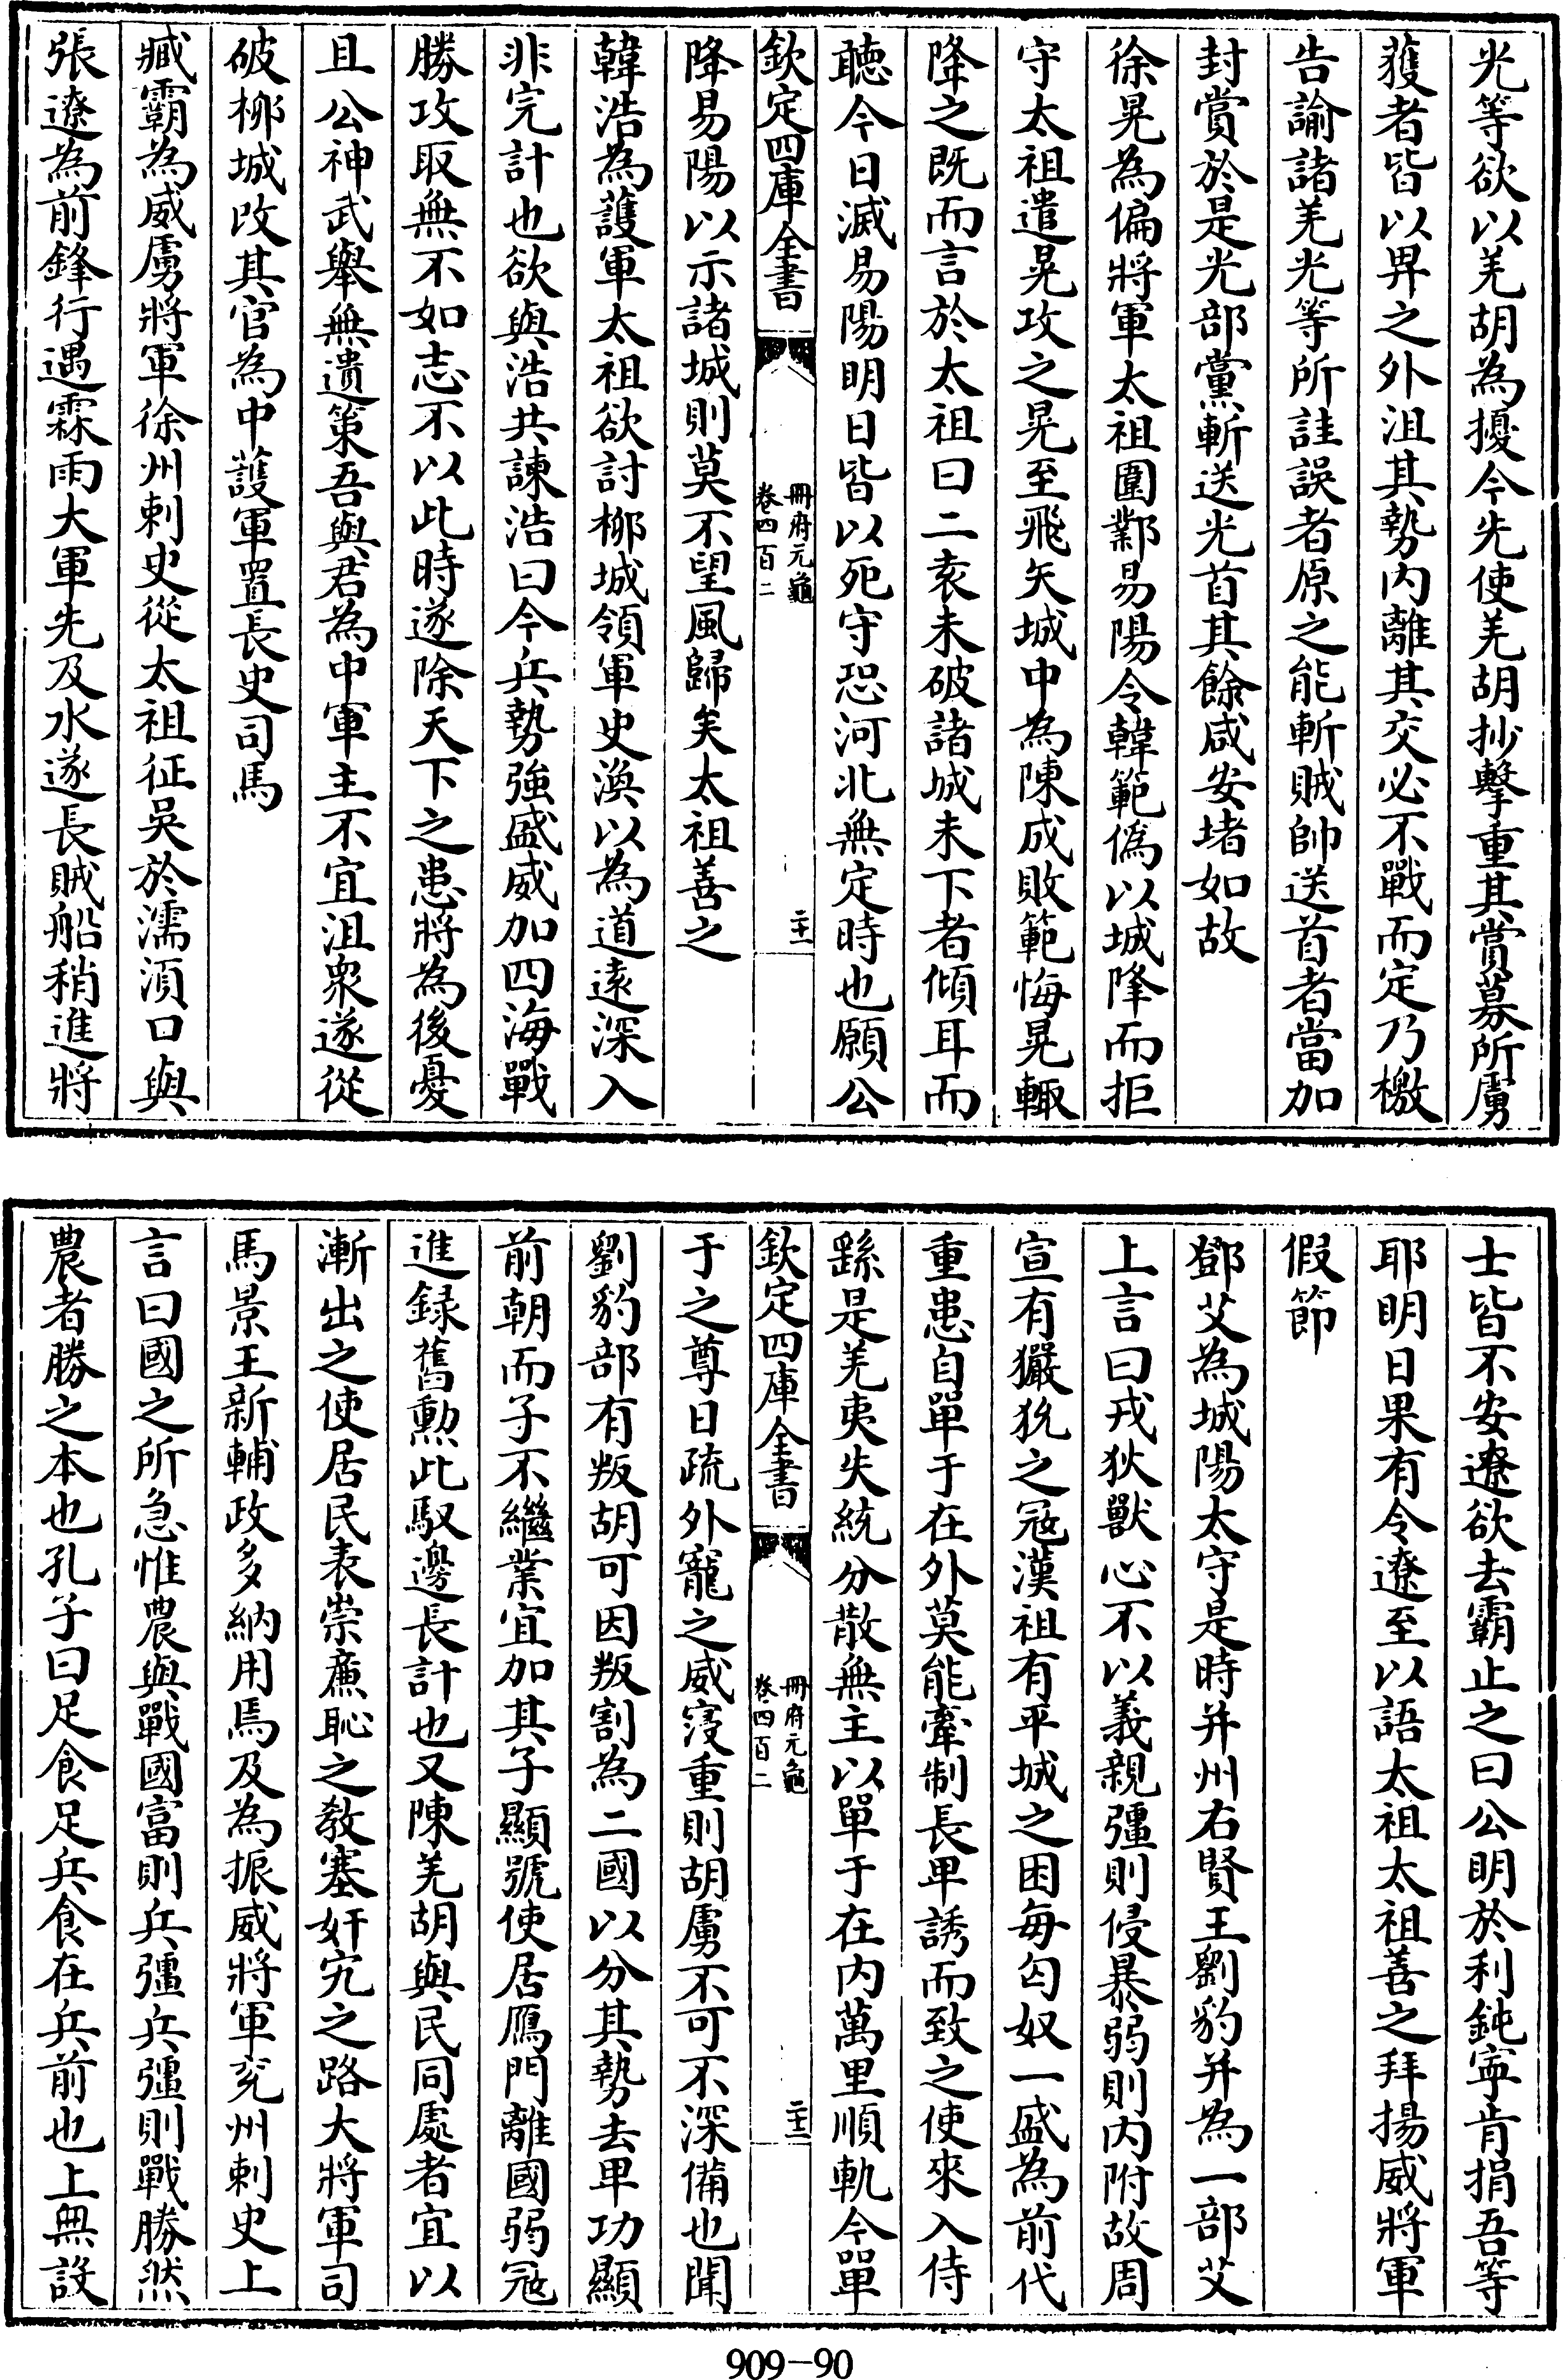 光等欲以羌胡為擾今先使羌胡抄擊重其賞募所虜
獲者皆以畀之外沮其勢内離其交必不戰而定乃檄
告諭諸羌光等所詿誤者原之能斬賊帥送首者當加
封賞於是光部黨斬送光首其餘咸安堵如故
徐晃為偏將軍太祖圍鄴易陽令韓範偽以城降而拒
守太祖遣晃攻之晃至飛矢城中為陳成敗範悔晃輙
降之既而言於太祖曰二袁未破諸城未下者傾耳而
聽今日滅易陽明日皆以死守恐河北無定時也願公
欽定四庫全書
冊府元龜
卷四百二
二十一
降易陽以示諸城則莫不望風歸矣太祖善之
韓浩為護軍太祖欲討桞城領軍史渙以為道逺深入
非完計也欲與浩共諫浩曰今兵勢強盛威加四海戰
勝攻取無不如志不以此時遂除天下之患將為後憂
且公神武舉無遺策吾與君為中軍主不宜沮衆遂從
破桞城改其官為中護軍置長史司馬
臧霸為威虜將軍徐州刺史從太祖征吳於濡湏口與
張遼為前鋒行遇霖雨大軍先及水遂長賊船稍進將
士皆不安遼欲去霸止之曰公明於利鈍寜肯捐吾等
耶明日果有令遼至以語太祖太祖善之拜揚威將軍
假節
鄧艾為城陽太守是時并州右賢王劉豹并為一部艾
上言曰戎狄獸心不以義親彊則侵暴弱則内附故周
宣有玁狁之冦漢祖有平城之困每匈奴一盛為前代
重患自單于在外莫能牽制長卑誘而致之使來入侍
繇是羌夷失統分散無主以單于在内萬里順軌今單
欽定四庫全書
冊府元龜
卷四百二
二十二
于之尊日疏外寵之威寖重則胡虜不可不深備也聞
劉豹部有叛胡可因叛割為二國以分其勢去卑功顯
前朝而子不繼業宜加其子顯號使居鴈門離國弱冦
進録舊勲此馭邊長計也又陳羌胡與民同處者宜以
漸出之使居民表崇亷恥之教塞奸宄之路大將軍司
馬景王新輔政多納用焉及為振威將軍兖州刺史上
言曰國之所急惟農與戰國富則兵彊兵彊則戰勝然
農者勝之本也孔子曰足食足兵食在兵前也上無設
909-90